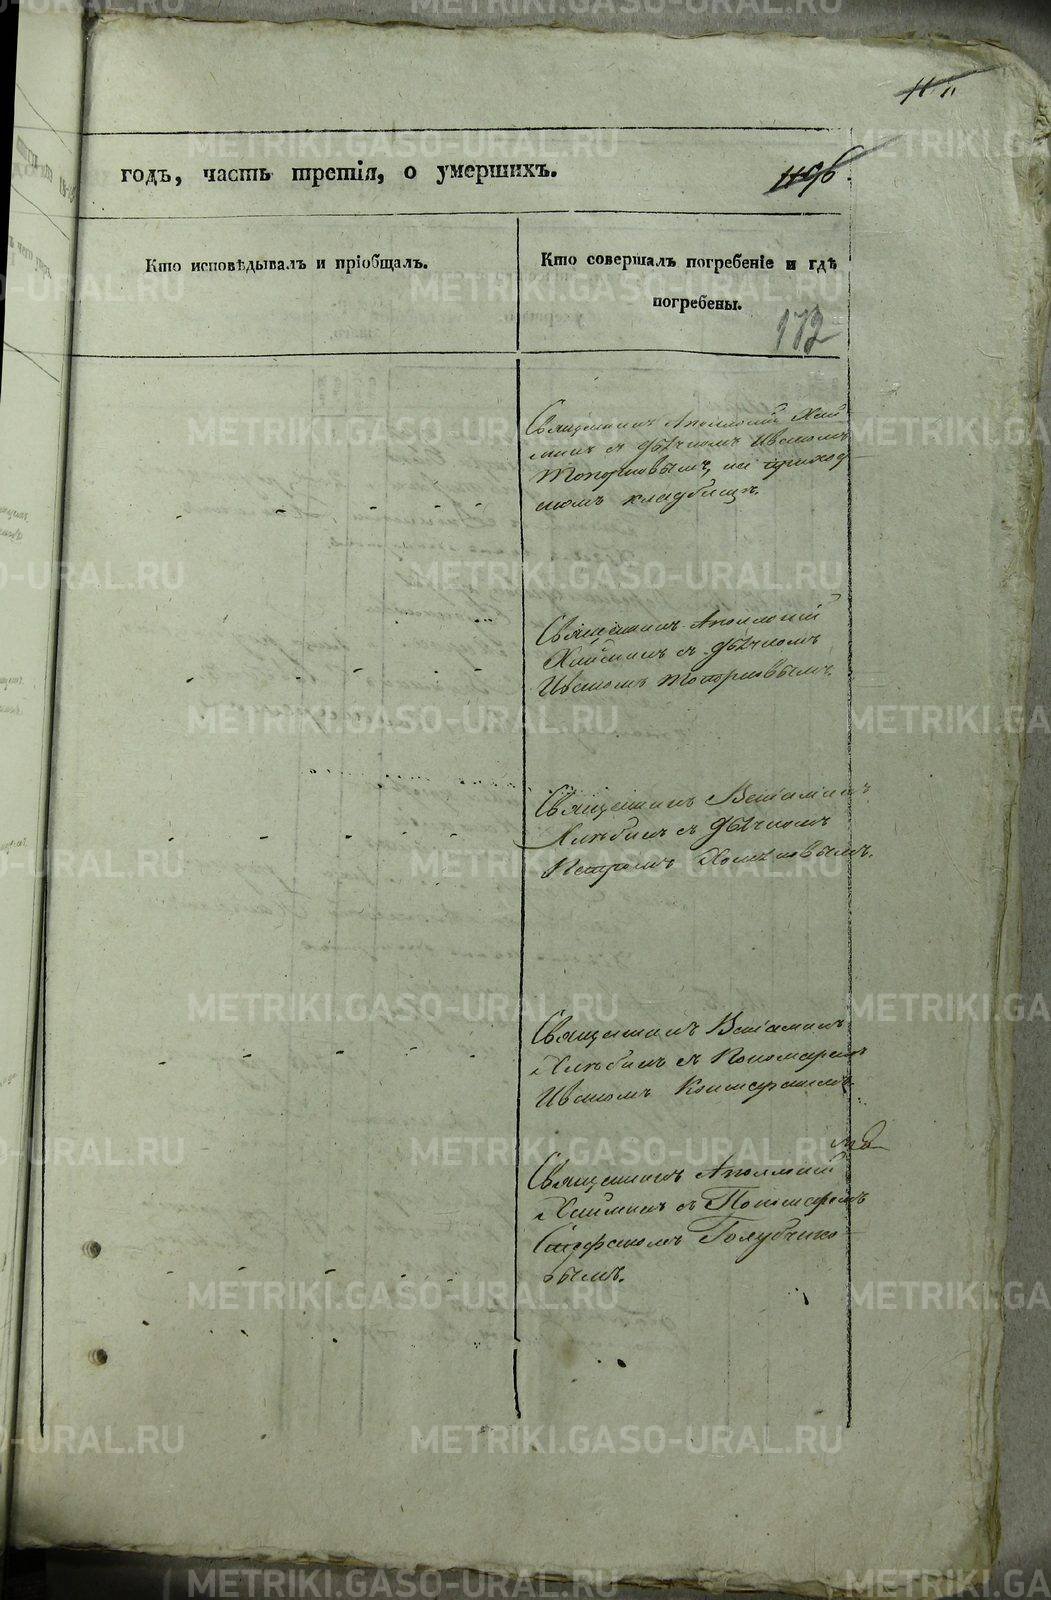 годъ, часть третія, о умершихъ.
Кто исповѣдывалъ и пріобщалъ.
Кто совершалъ погребеніе и гдѣ
погребены.
172
Священникъ Аполлоній Хлы
нинъ съ дьячкомъ Иваномъ
Топорковымъ, на приход
скомъ кладбищѣ.
Священникъ Аполлоній
съ дьячкомъ
Иваномъ Топорковымъ.
Священникъ Веніаминъ
Хлѣбинъ съ дьячкомъ
Петромъ Хомяковымъ.
Священникъ Веніаминъ
Хлѣбинъ съ Пономаремъ
Иваномъ
Священникъ Аполлоній
съ Пономаремъ
Стефаномъ Голубчико
вымъ.
METRIKI.GASO-URAL.RU